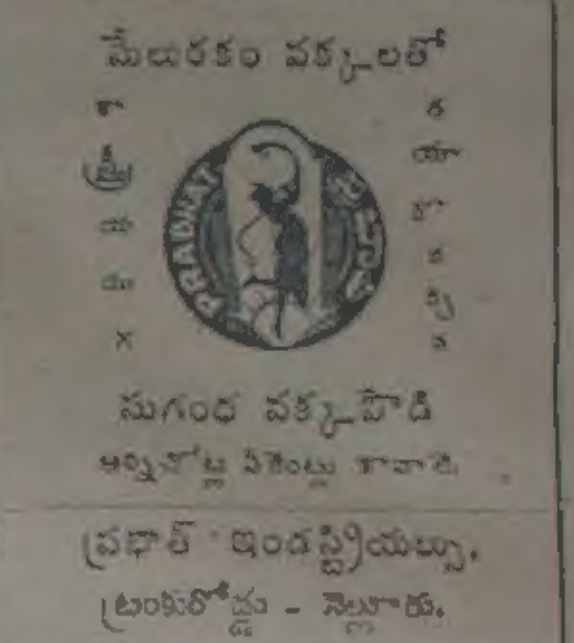 మేలురకం వక్కలతో
శాస్త్రీయముగ
తయారు
PRABHAT ప్రభాత్
సుగంధ వక్కపొడి
అన్నిచోట్ల ఏజెంట్లు కావాలి.
ప్రభాత్ ఇండస్ట్రియల్సు,
ట్రంకురోడ్డు - నెల్లూరు.